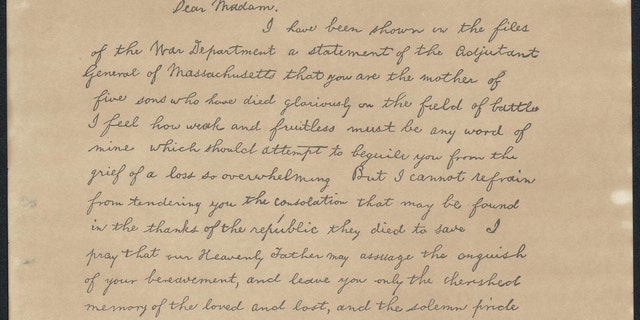 Dear Madam.
I have been shown in the files
of the War Department a statement of the Adjutant
General of Massachusetts that you are the mother of
five sons who have died gloriously on the field of battle
I feel how weak and fruitless must be any word of
mine which should attempt to beguile you from the
grief of a loss so overwhelming But I cannot refrain
from tendering you the consolation that may be found
in the thanks of the republic they died to save I
pray that our Heavenly Father may assuage the anguish
of your bereavement, and leave you only the cherished
memory of the loved and lost, and the solemn pride